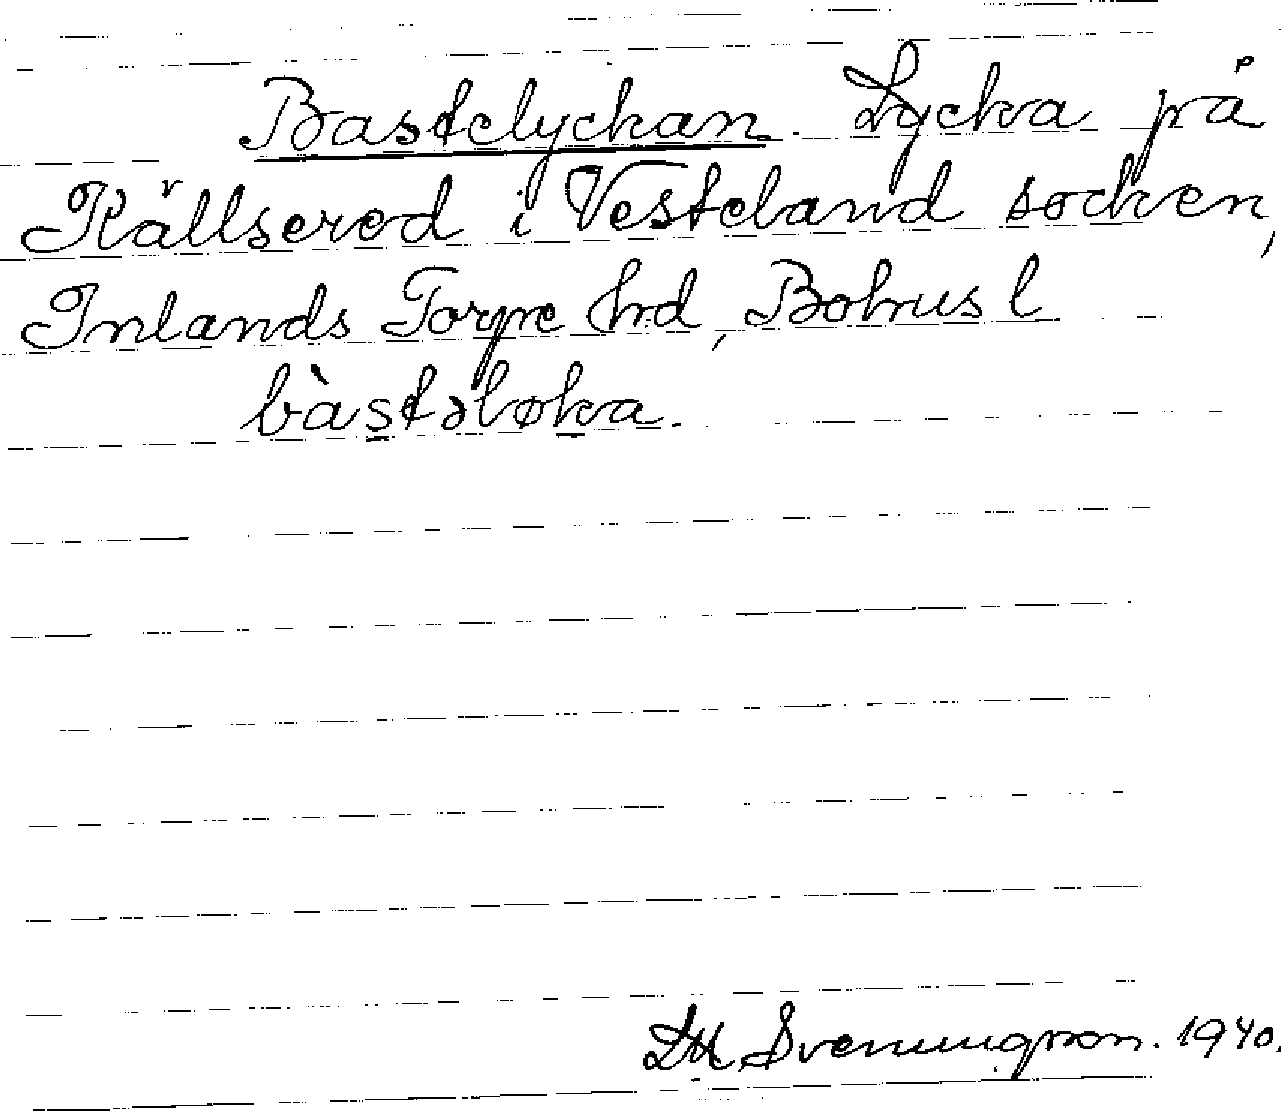 Bastelyckan. Lycka på
Källserod i Vesteland socken,
Inlands Torpe hrd, Bohusl
bàstəløka.
Svenungsson. 1940.